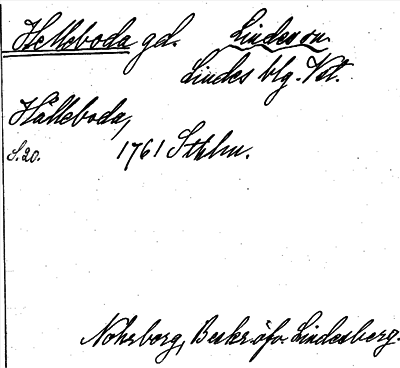 Helleboda gd. Lindes sn.
Lindes blg. Vstl.
Hålleboda,
S. 20. 1761 Sthlm.
Nohrborg, Beskr. öfv. Lindesberg.